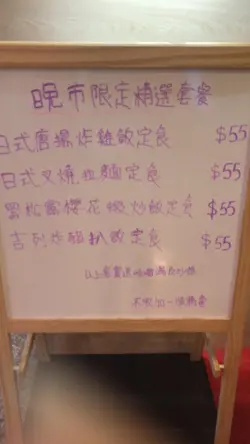 晚市限定精選套餐
日式唐揚炸雞飯定食 $55
日式叉燒拉麵定食 $55
黑松露櫻花蝦炒飯定食 $55
吉列炸豬扒飯定食 $55
以上套餐送
不收加一服務費